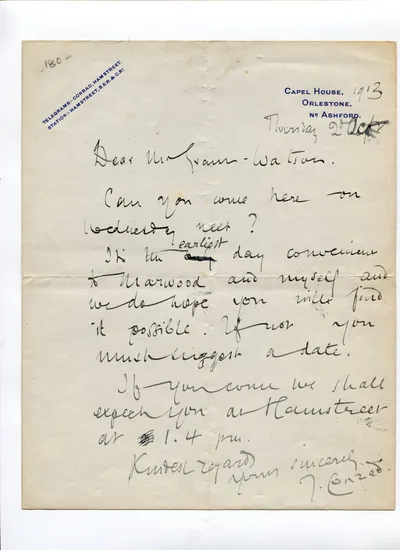 -180-
TELEGRAMS:- CONRAD, HAMSTREET.
STATION:- HAMSTREET, S.E.R. & C.R.
CAPEL HOUSE,
ORLESTONE,
Nr ASHFORD.
1913
Thursday 2d Oct
Dear Mr Grant-Watson.
Can you come here on
Wednesday next?
It's the earliest day convenient
to Marwood and myself and
we do hope you will find
it possible. If not you
must suggest a date.
If you come we shall
expect you at Hamstreet
at 1.4 pm.
Kindest regards
Yours sincerely
J. Conrad.